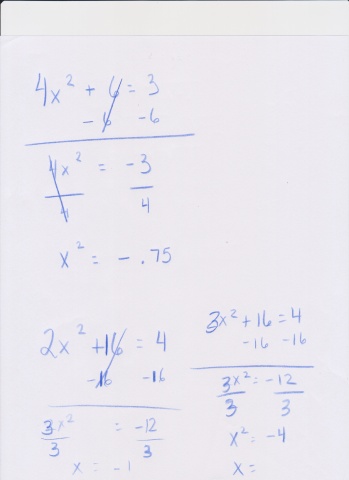 4x² + 6 = 3
- 6 -6
4x² = -3
4 4
x² = - .75
2x² + 16 = 4
-16 -16
3x² = -12
3 3
x = -1
3x² + 16 = 4
-16 -16
3x² = -12
3 3
x² = -4
x =